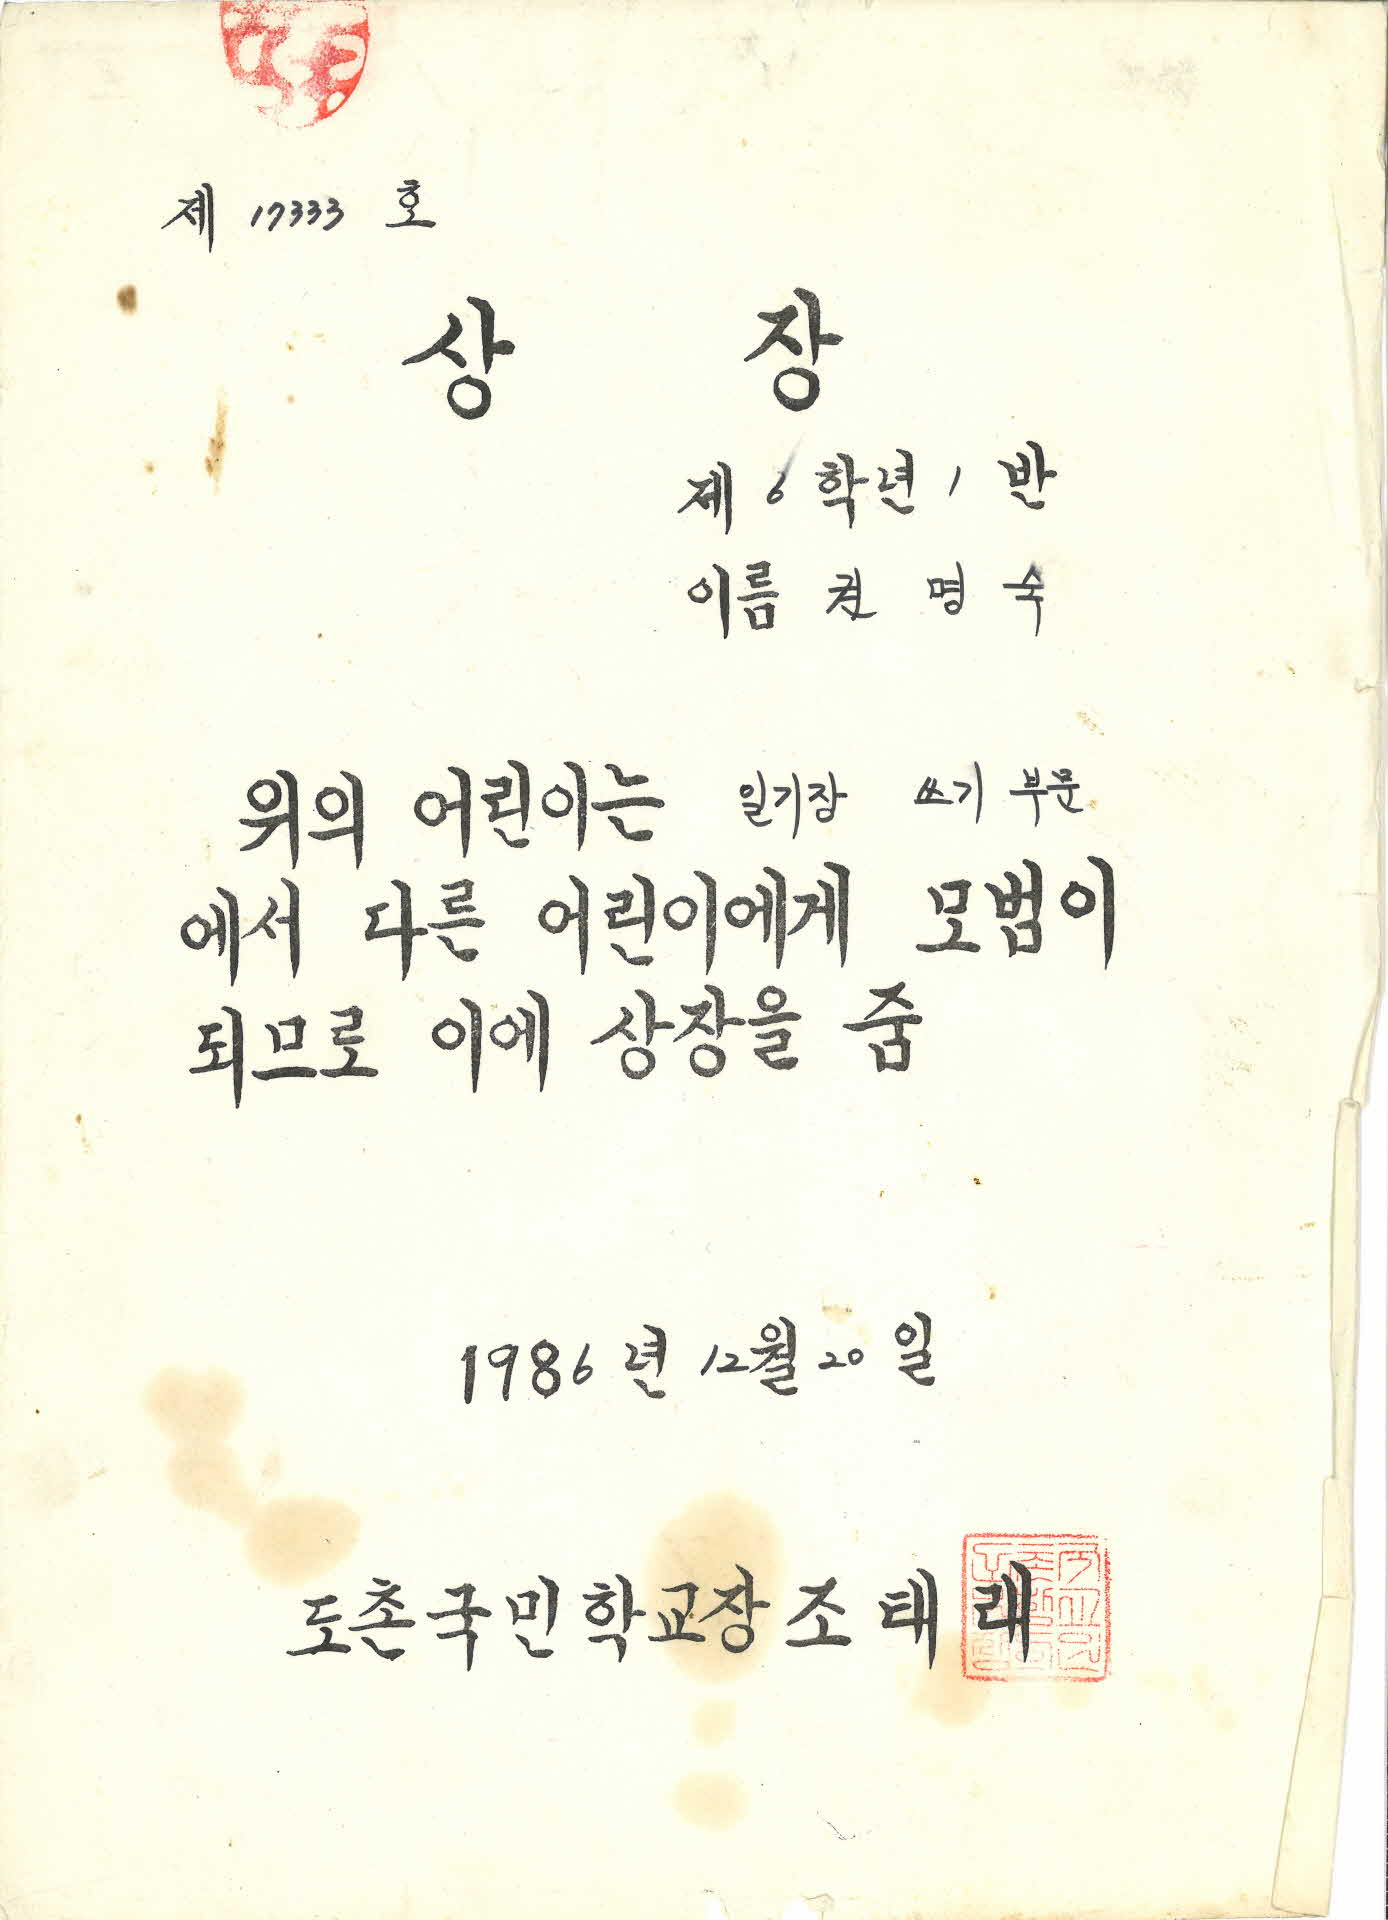 제 17333 호
상 장
제 6 학년 1 반
이름 권 명 숙
위의 어린이는 일기장 쓰기 부문
에서 다른 어린이에게 모범이
되므로 이에 상장을 줌
1986 년 12월 20 일
도촌국민학교장 조 태 래